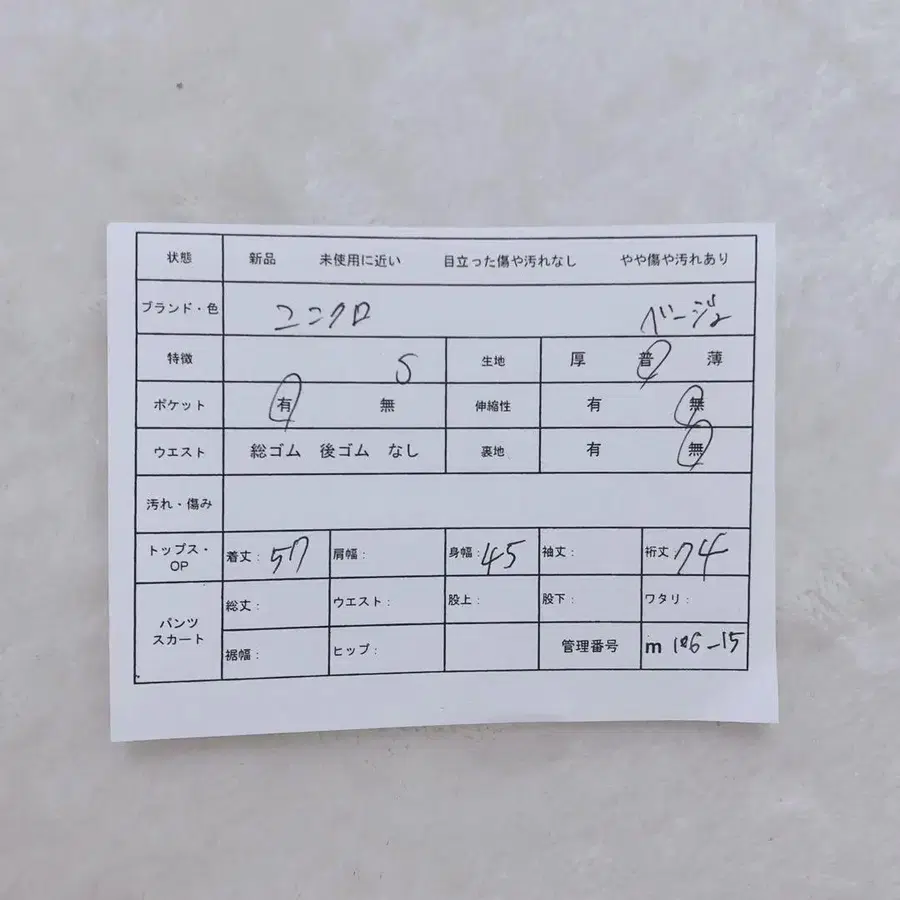 状態 新品 未使用に近い 目立った傷や汚れなし やや傷や汚れあり
ブランド・色 ユニクロ ベージュ
特徴 S 生地 厚 普 薄
ポケット 有 無 伸縮性 有 無
ウエスト 総ゴム 後ゴム なし 裏地 有 無
汚れ・傷み
トップス・OP 着丈: 57 肩幅: 身幅: 45 袖丈: 裄丈: 74
パンツ スカート 総丈: ウエスト: 股上: 股下: ワタリ:
裾幅: ヒップ: 管理番号 m 106-15